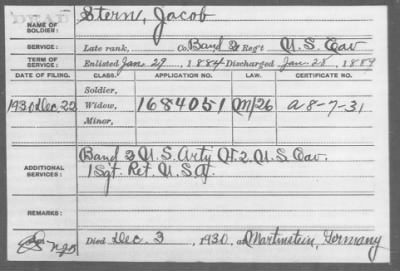 NAME OF SOLDIER: Stern, Jacob
SERVICE: Late rank, Co. Band 2 Reg't U. S. Cav
TERM OF SERVICE: Enlisted Jan 29, 1884 Discharged Jan. 28, 1889
DATE OF FILING. CLASS. APPLICATION NO. LAW. CERTIFICATE NO.
Soldier,
1930 Dec. 22 Widow, 1684051 M/26 a 8-7-31
Minor,
ADDITIONAL SERVICES: Band 2 U. S. Arty Tr. 2. U. S. Cav.
1 Sgt. Ret. U. S. A.
REMARKS:
Died Dec. 3, 1930, at Martinstein, Germany